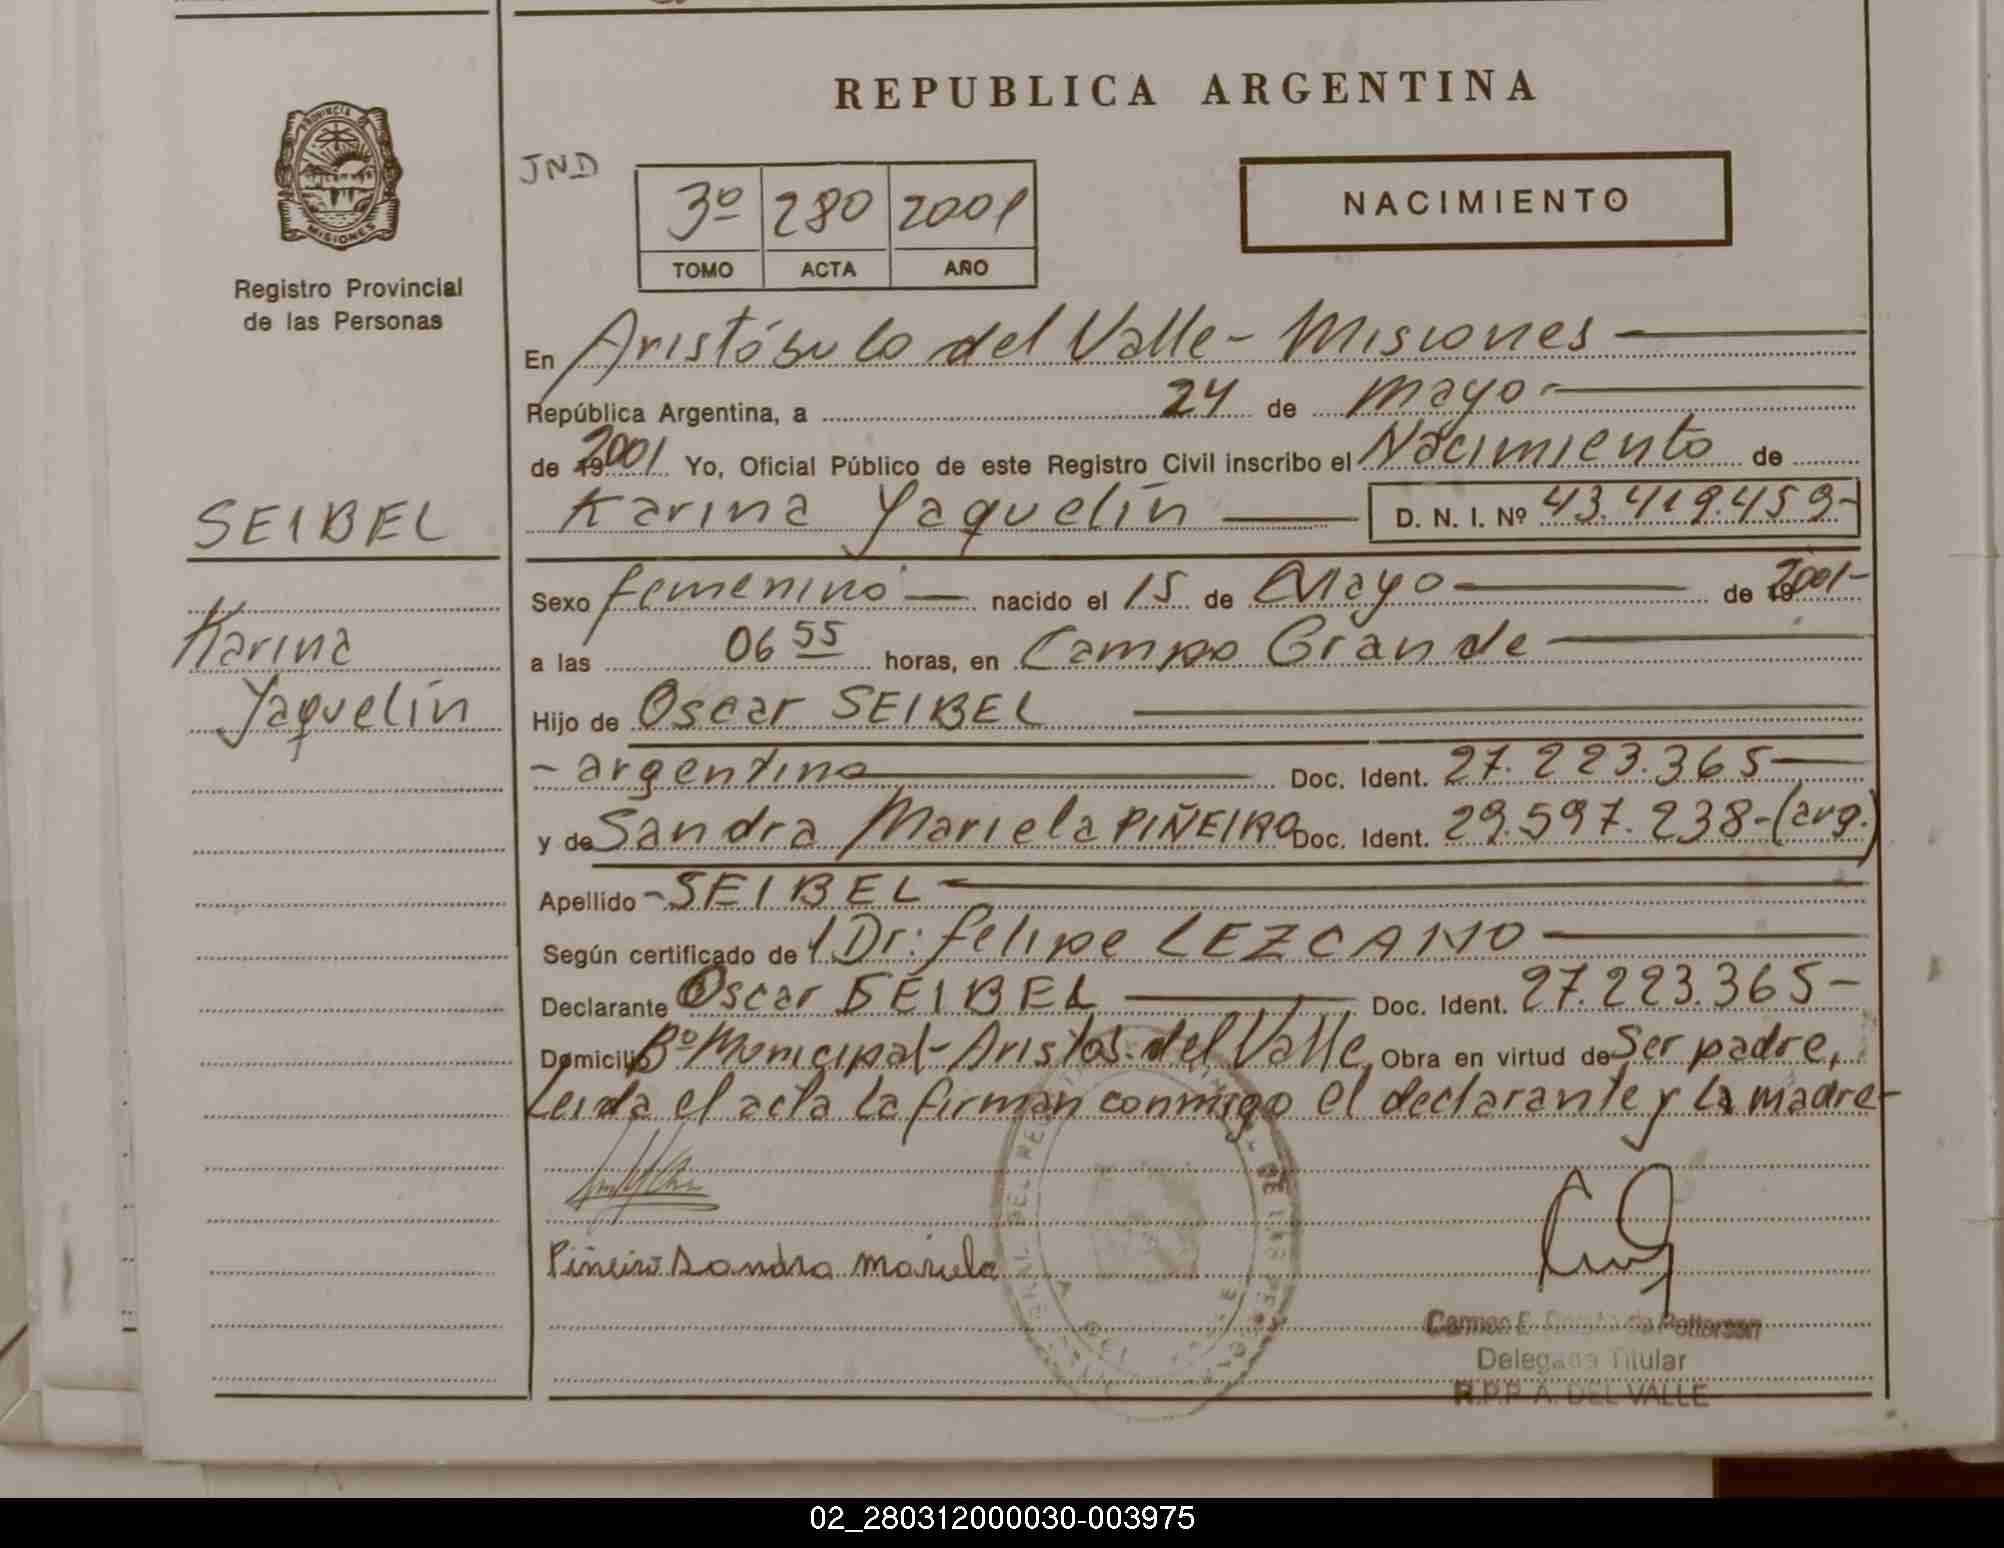 REPUBLICA ARGENTINA
PROVINCIA DE
MISIONES
Registro Provincial
de las Personas
JND
3º 280 2001
TOMO ACTA AÑO
NACIMIENTO
En Aristóbulo del Valle - Misiones
República Argentina, a 24 de Mayo
de 2001 Yo, Oficial Público de este Registro Civil inscribo el Nacimiento de
Karina Yaquelín D. N. I. Nº 43.419.459-
SEIBEL
Karina
Yaquelín
Sexo femenino nacido el 15 de Mayo de 2001-
a las 06 55 horas, en Campo Grande
Hijo de Oscar SEIBEL
- argentino Doc. Ident. 27.223.365-
y de Sandra Mariela PIÑEIRO Doc. Ident. 29.597.238-(arg.)
Apellido - SEIBEL
Según certificado de Dr: Felipe LEZCANO
Declarante Oscar SEIBEL Doc. Ident. 27.223.365-
Domicilio Bº Municipal- Aristób. del Valle, Obra en virtud de Ser padre,
Leida el acta la firman conmigo el declarante y la madre-
Piñeiro Sandra Mariela
Delegada Titular
R.P.P. A. DEL VALLE
02_280312000030-003975